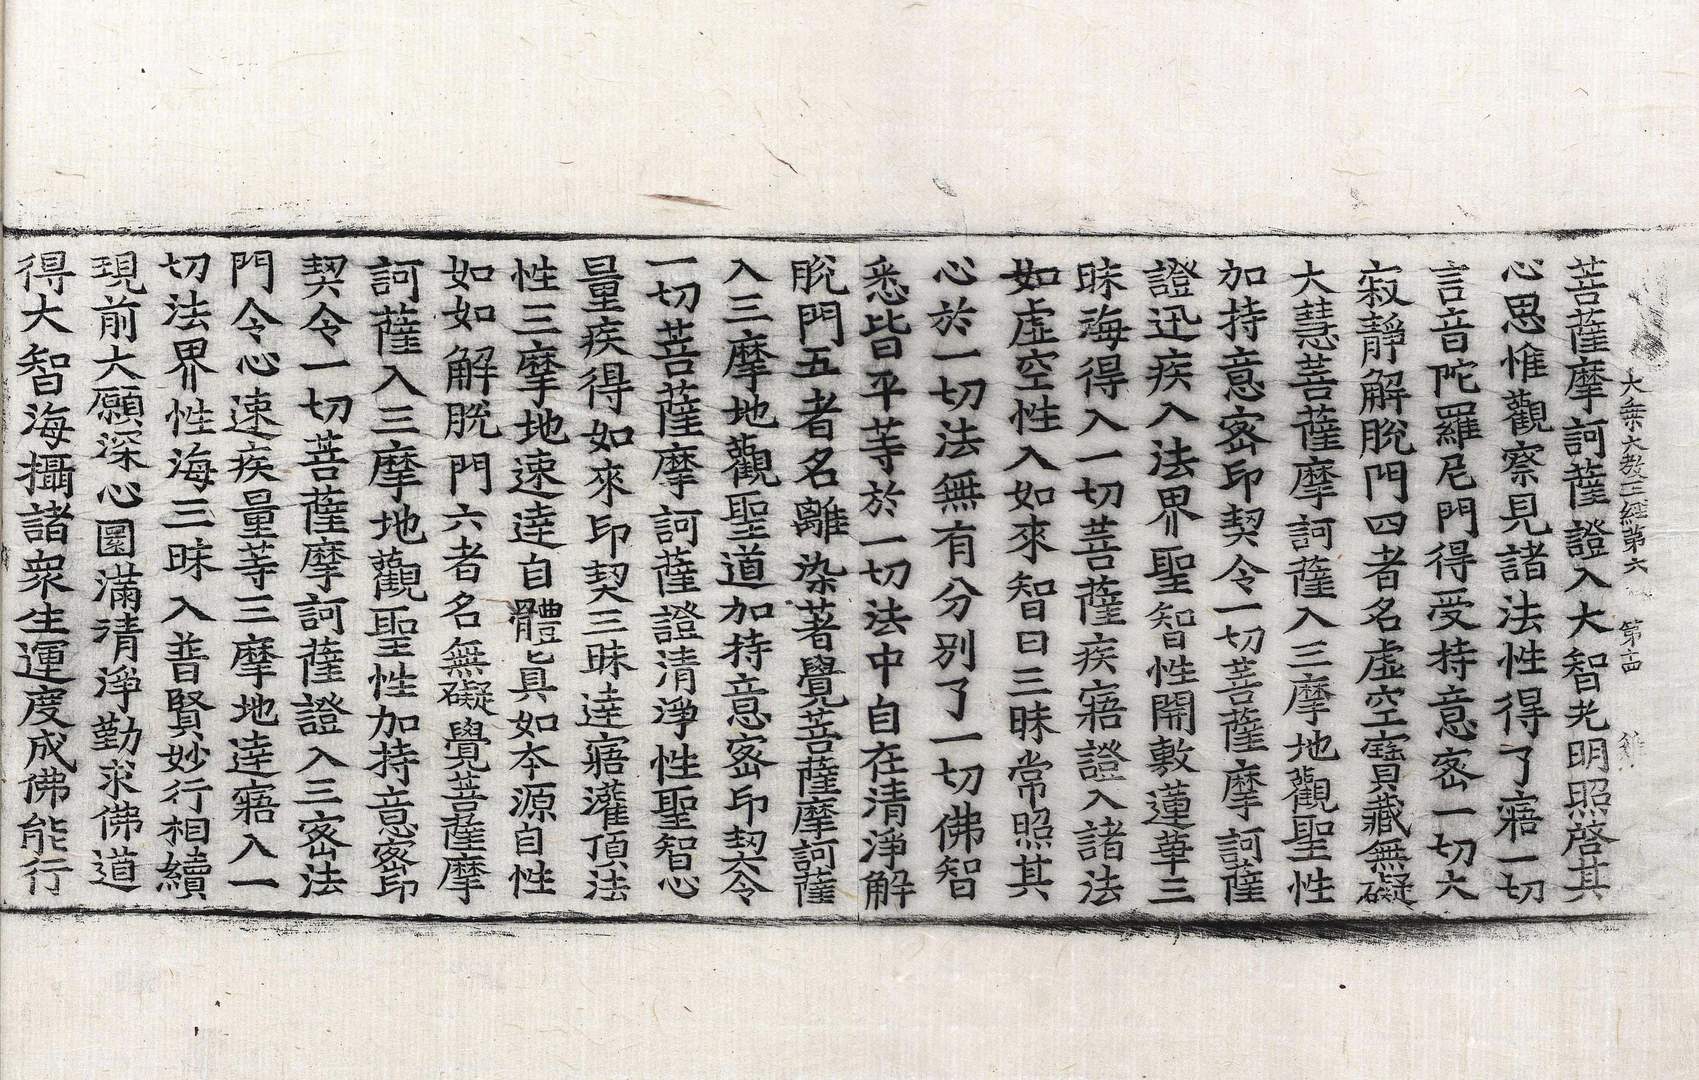 大乗大教王經第六 第十四 雞
菩薩摩訶薩證入大智光明照啓其
心思惟觀察見諸法性得了寤一切
言音陀羅尼門得受持意密一切大
寂靜解脫門四者名虛空寶藏無礙
大慧菩薩摩訶薩入三摩地觀聖性
加持意密印契令一切菩薩摩訶薩
證迅疾入法界聖智性開敷蓮華三
昧海得入一切菩薩疾寤證入諸法
如虛空性入如來智曰三昧常照其
心於一切法無有分別了一切佛智
悉皆平等於一切法中自在清淨解
脫門五者名離染著覺菩薩摩訶薩
入三摩地觀聖道加持意密印契令
一切菩薩摩訶薩證清淨性聖智心
量疾得如來印契三昧達寤灌頂法
性三摩地速達自體眞如本源自性
如如解脫門六者名無礙覺菩薩摩
訶薩入三摩地觀聖性加持意密印
契令一切菩薩摩訶薩證入三密法
門令心速疾量等三摩地達寤入一
切法界性海三昧入普賢妙行相續
現前大願深心圓滿清淨勤求佛道
得大智海攝諸衆生運度成佛能行